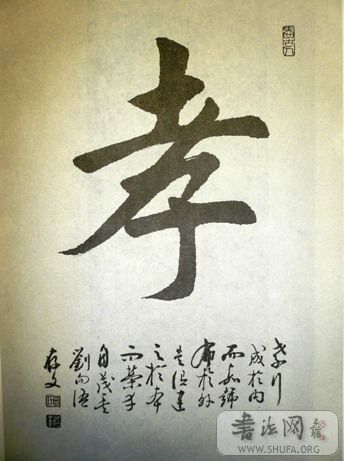 孝
孝行
成於内
而嘉號
布於外
是謂建
之於本
而榮華
自茂矣
劉向語
存文
书法网
WWW.SHUFA.ORG